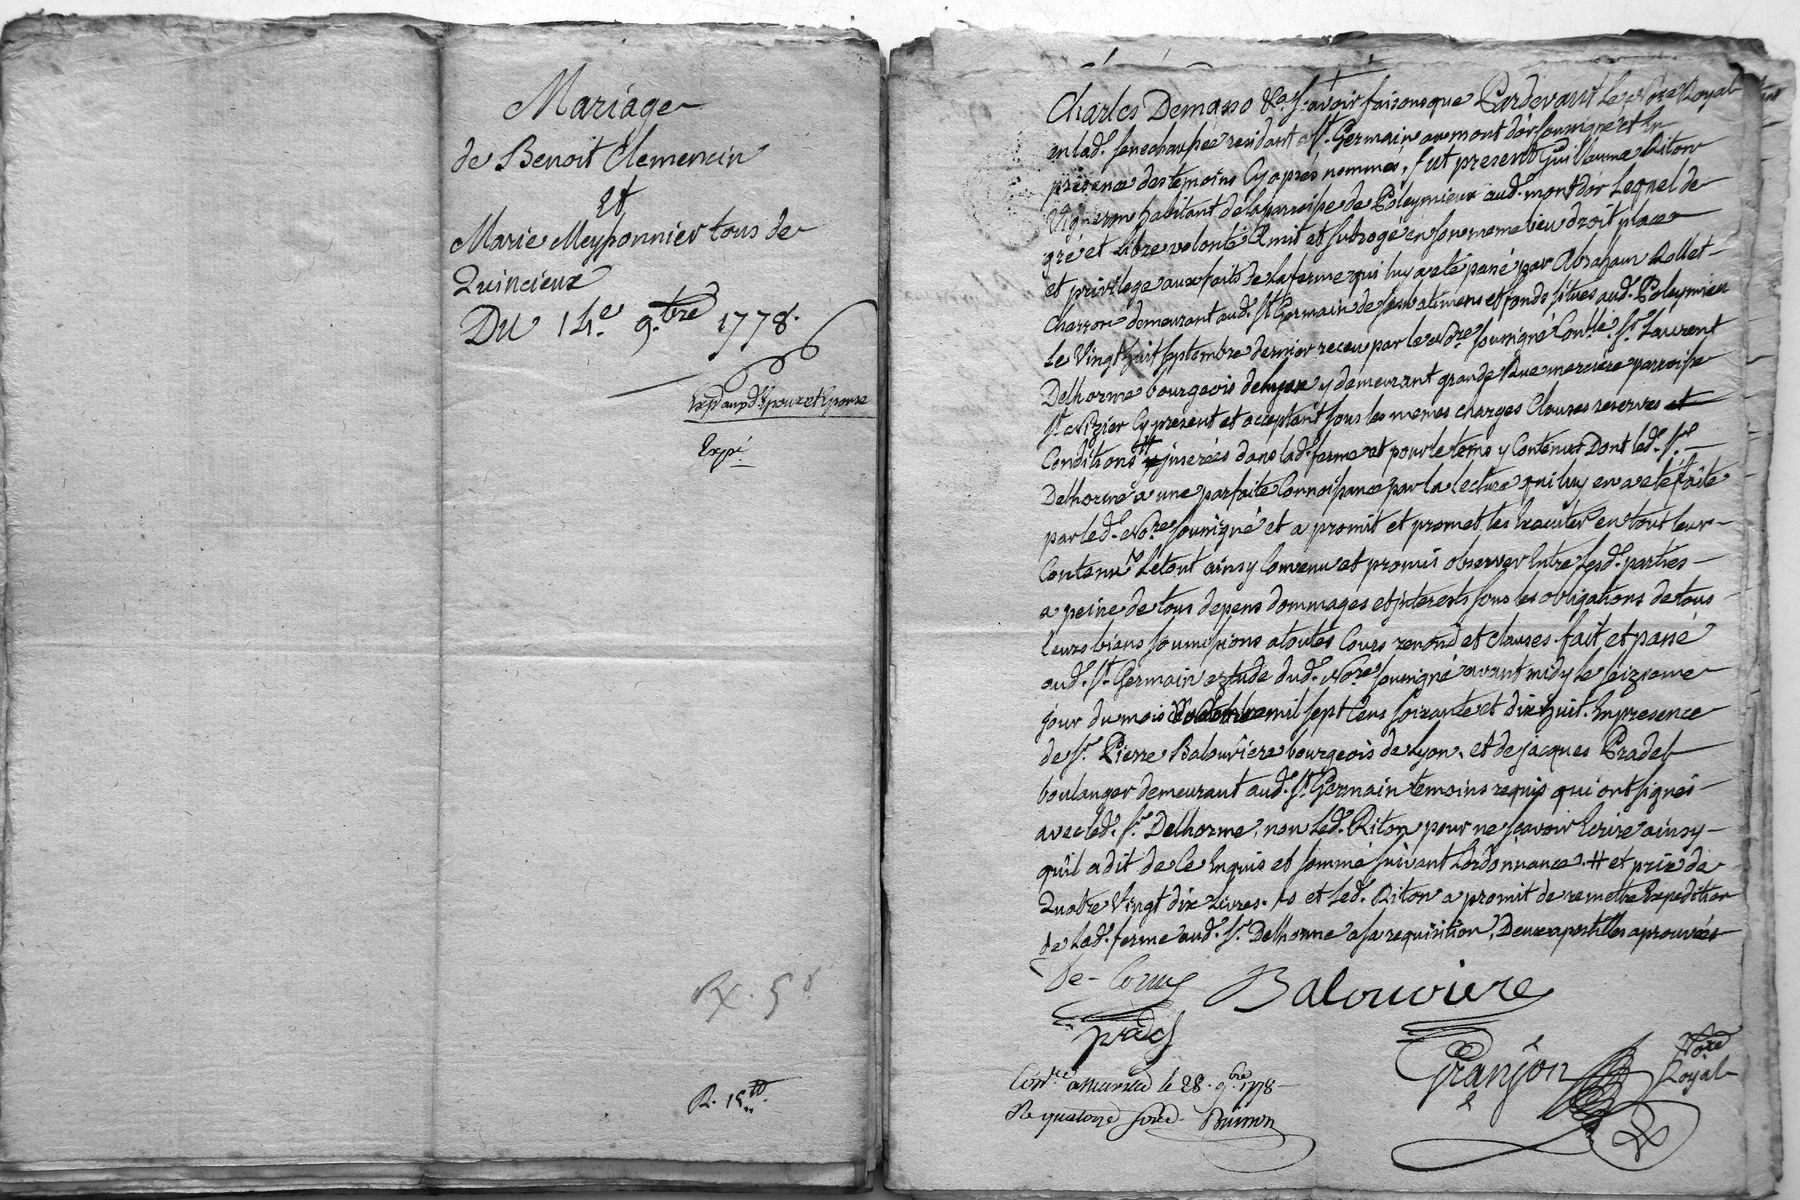 Mariage
de Benoit Clemencin
et
Marie Meyssonnier tous de
Quincieux
Du 14e. 9.bre 1778.
Expé
R. 5
R. 15tt.
Charles Demaso &a. sçavoir faisons que Pardevant Le Nore Royal
en lad. senechaussée residant a St. Germain au mont d'or soussigné et en
présence des temoins cy après nommés, fut present Guillaume Riton
Vigneron habitant de la parroisse de Poleymieux aud. mont d'or Lequel de
gré et libre volonté a mit et subrogé en son meme lieu droit place
et privilege aux faits de la ferme qui luy a eté passé par Abraham Rollet
Charron demeurant aud. St. Germain de ses batimens et fonds situés aud. Poleymieu
Le Vingt huit septembre dernier receu par le Nore soussigné Contlé. Sr. Laurent
Delhorme bourgeois de Lyon y demeurant grande Rue merciere parroisse
St. Nizier cy present et acceptant sous les memes charges Clauses reserves et
Conditions # inserées dans lad. ferme et pour le tems y Contenus Dont led. Sr.
Delhorme a une parfaite Connoissance par la lecture qui luy en a eté faite
par led. Nore soussigné et a promit et promet les Executer en tout leur
Contenu Le tout ainsy Convenu et promis observer Entre Lesd. parties
a peine de tous depens dommages et interests sous les obligations de tous
leurs biens soumissions a toutes Cours renond et clauses. fait et passé
aud. St. Germain estude dud. Nore soussigné avant midy le seizieme
jour du mois mil sept Cens soixante et dix huit. En presence
de Sr. Pierre Balouviere bourgeois de Lyon, et de jacques Pradel
boulanger demeurant aud. St. Germain temoins requis qui ont signés
avec led. Sr. Delhorme, non Led. Riton pour ne scavoir Ecrire ainsy
qu'il a dit de Ce Enquis et sommé suivant Lordonnance. # et prix de
Quatre Vingt dix Livres. et Led. Riton a promit de remettre Expedition
de Lad. ferme aud. Sr. Delhorme a sa requisition, Deux apostilles aprouvées
Balouviere
pradel
Granjon Nore Royal
le 28. 9.bre 1778
Re quatorze